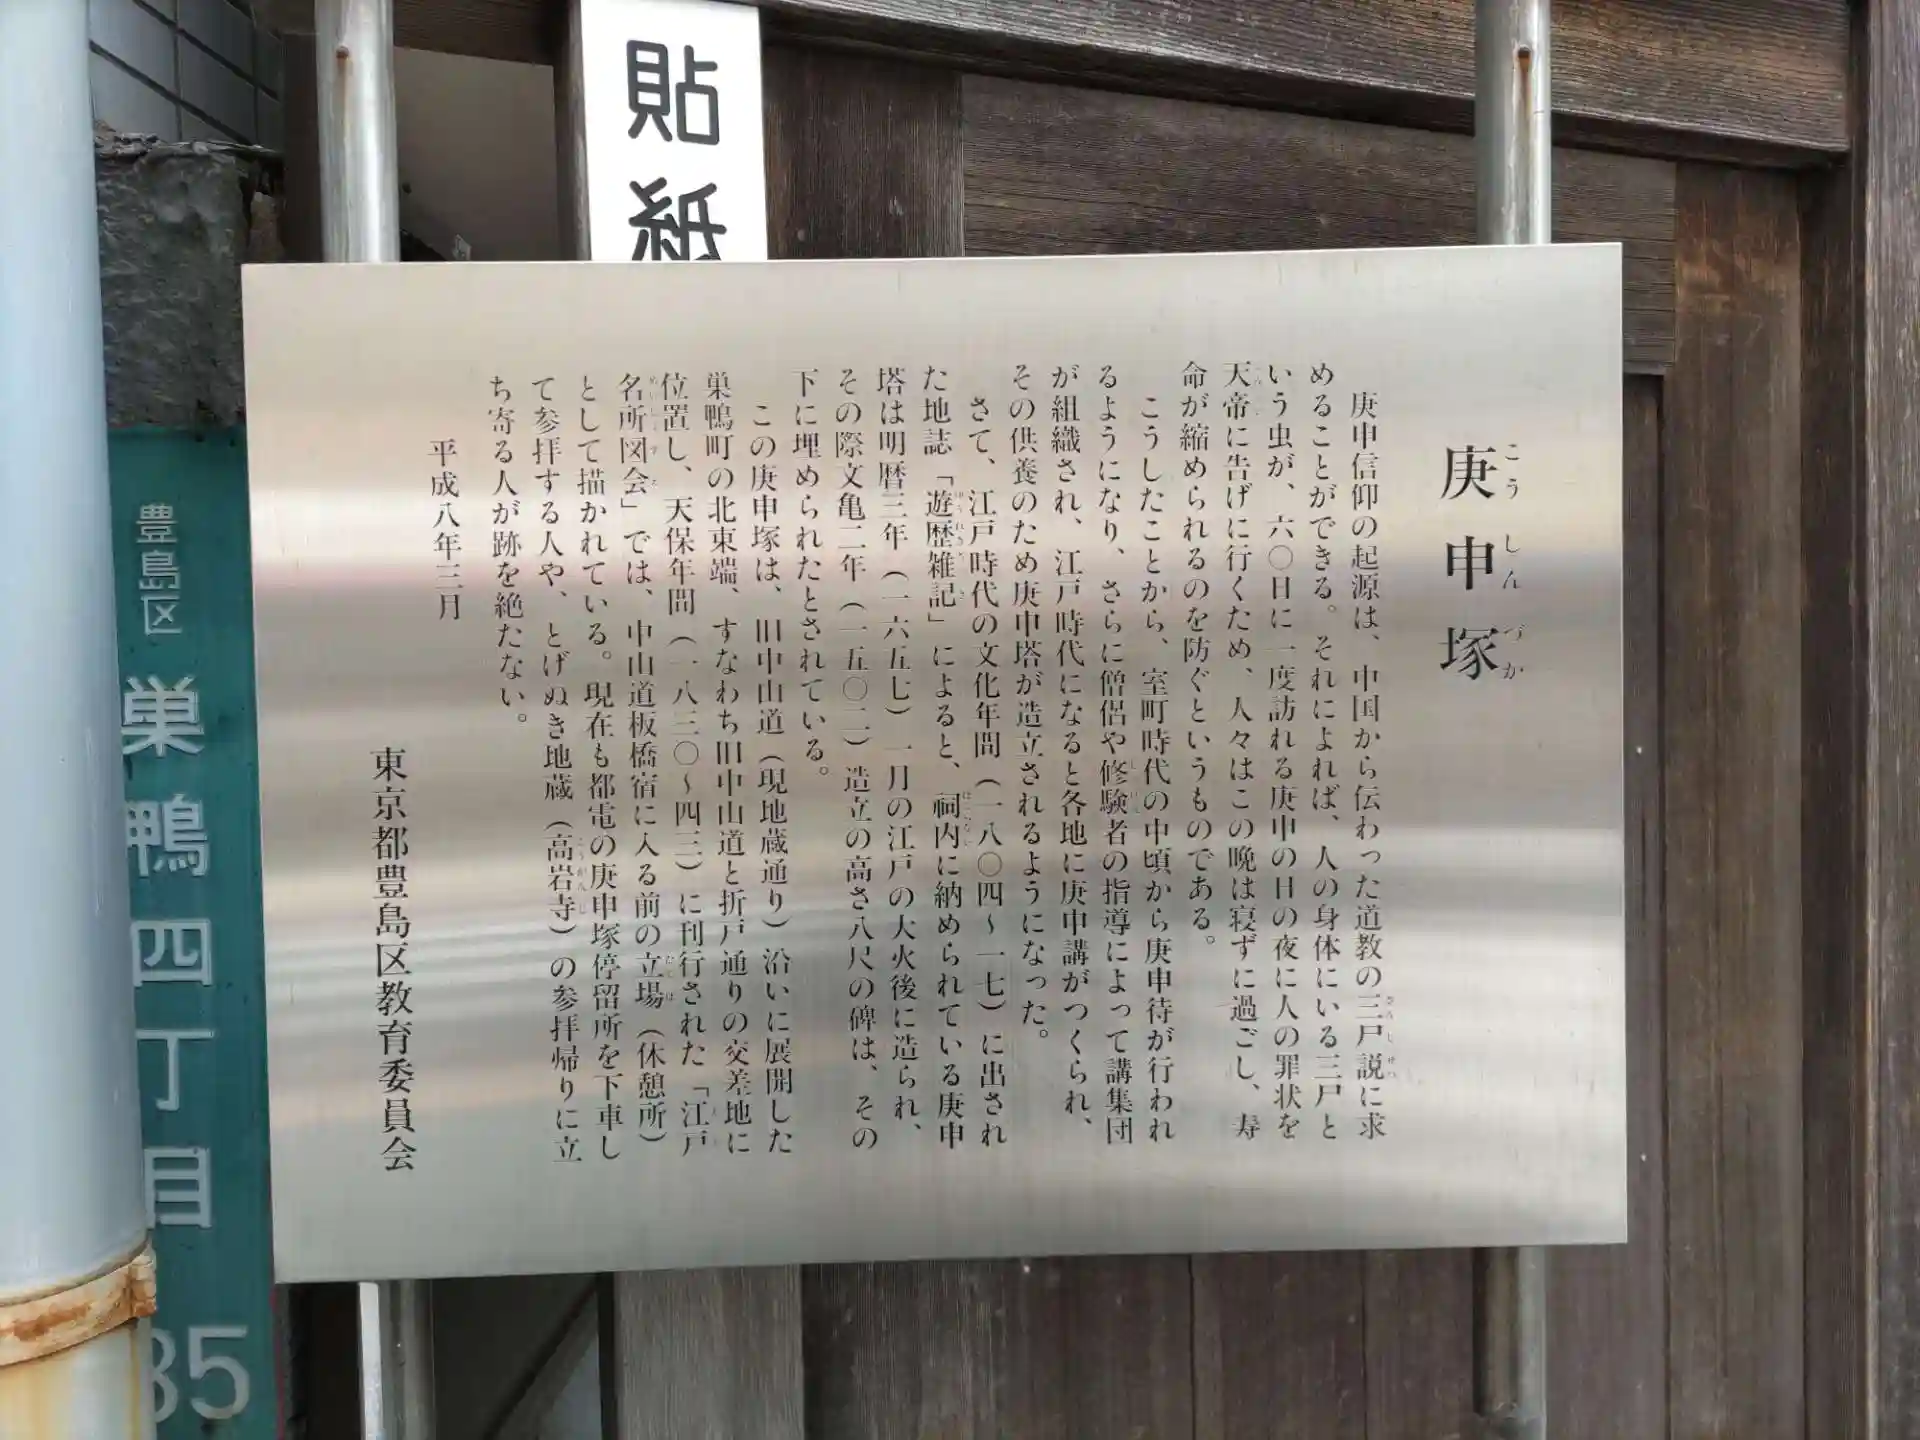 貼紙
庚申塚
こうしんづか
庚申信仰の起源は、中国から伝わった道教の三尸説に求
めることができる。それによれば、人の身体にいる三尸と
いう虫が、六〇日に一度訪れる庚申の日の夜に人の罪状を
天帝に告げに行くため、人々はこの晩は寝ずに過ごし、寿
命が縮められるのを防ぐというものである。
こうしたことから、室町時代の中頃から庚申待が行われ
るようになり、さらに僧侶や修験者の指導によって講集団
が組織され、江戸時代になると各地に庚申講がつくられ、
その供養のため庚申塔が造立されるようになった。
さて、江戸時代の文化年間（一八〇四～一七）に出され
た地誌「遊歴雑記」によると、祠内に納められている庚申
塔は明暦三年（一六五七）一月の江戸の大火後に造られ、
その際文亀二年（一五〇二）造立の高さ八尺の碑は、その
下に埋められたとされている。
この庚申塚は、旧中山道（現地蔵通り）沿いに展開した
巣鴨町の北東端、すなわち旧中山道と折戸通りの交差地に
位置し、天保年間（一八三〇～四三）に刊行された「江戸
名所図会」では、中山道板橋宿に入る前の立場（休憩所）
として描かれている。現在も都電の庚申塚停留所を下車し
て参拝する人や、とげぬき地蔵（高岩寺）の参拝帰りに立
ち寄る人が跡を絶たない。
平成八年三月
東京都豊島区教育委員会
豊島区
巣鴨四丁目
35